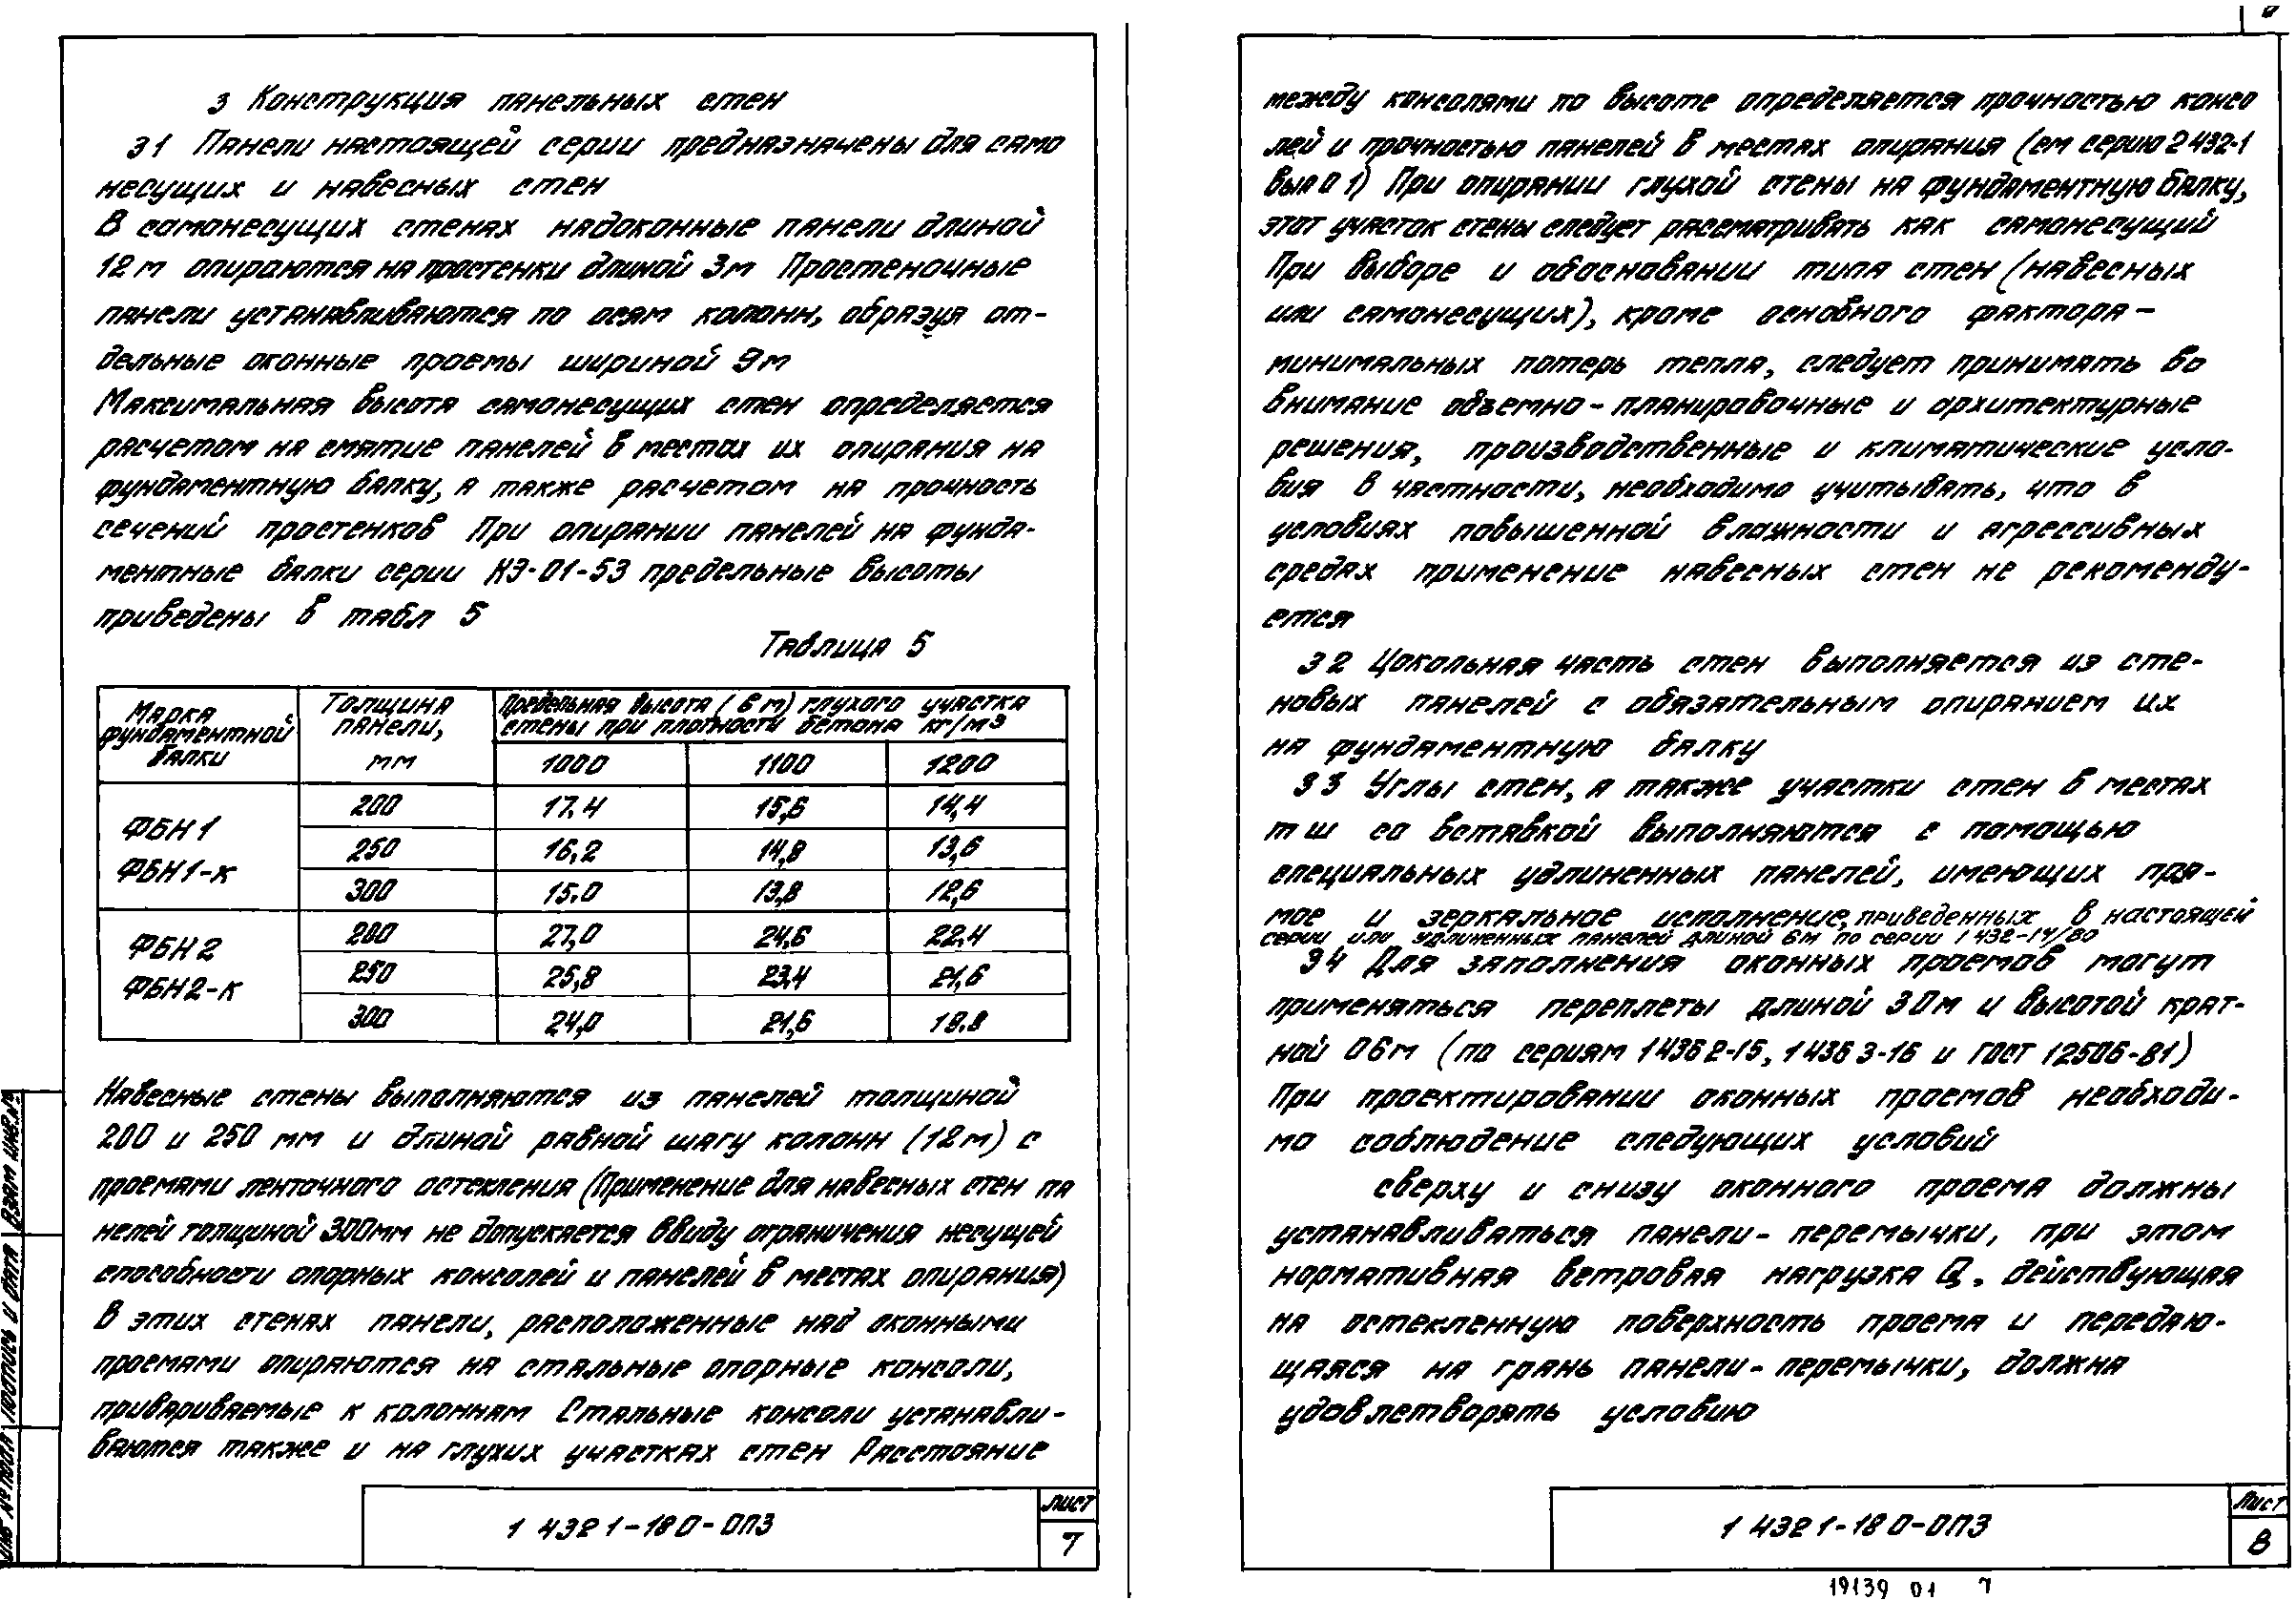 3 Конструкция панельных стен
3 1 Панели настоящей серии предназначены для само
несущих и навесных стен
В самонесущих стенах надоконные панели длиной
12 м опираются на простенки длиной 3м Простеночные
панели устанавливаются по осям колонн, образуя от-
дельные оконные проемы шириной 9м
Максимальная высота самонесущих стен определяется
расчетом на смятие панелей в местах их опирания на
фундаментную балку, а также расчетом на прочность
сечений простенков При опирании панелей на фунда-
ментные балки серии КЭ-01-53 предельные высоты
приведены в табл 5
Таблица 5
Марка фундаментной балки | Толщина панели, мм | Предельная высота (в м) глухого участка стены при плотности бетона кг/м3
1000 | 1100 | 1200
ФБН1 ФБН1-к | 200 | 17.4 | 15,6 | 14,4
250 | 16,2 | 14,8 | 13,6
300 | 15.0 | 13,8 | 12,6
ФБН2 ФБН2-к | 200 | 27,0 | 24,6 | 22.4
250 | 25,8 | 23,4 | 21,6
300 | 24,0 | 21,6 | 19.8
Навесные стены выполняются из панелей толщиной
200 и 250 мм и длиной равной шагу колонн (12м) с
проемами ленточного остекления (Применение для навесных стен па
нелей толщиной 300мм не допускается ввиду ограничения несущей
способности опорных консолей и панелей в местах опирания)
В этих стенах панели, расположенные над оконными
проемами опираются на стальные опорные консоли,
привариваемые к колоннам Стальные консоли устанавли-
ваются также и на глухих участках стен Расстояние
1 432 1-18 0-ОПЗ
Лист
7
Взам инв.№
Подпись и дата
Инв № подл
между консолями по высоте определяется прочностью консо
лей и прочностью панелей в местах опирания (см серию 2 432-1
вып 0 1) При опирании глухой стены на фундаментную балку,
этот участок стены следует рассматривать как самонесущий
При выборе и обосновании типа стен (навесных
или самонесущих), кроме основного фактора -
минимальных потерь тепла, следует принимать во
внимание объемно-планировочные и архитектурные
решения, производственные и климатические усло-
вия В частности, необходимо учитывать, что в
условиях повышенной влажности и агрессивных
средах применение навесных стен не рекоменду-
ется
3 2 Цокольная часть стен выполняется из сте-
новых панелей с обязательным опиранием их
на фундаментную балку
3 3 Углы стен, а также участки стен в местах
т ш со вставкой выполняются с помощью
специальных удлиненных панелей, имеющих пря-
мое и зеркальное исполнение, приведенных в настоящей
серии или удлиненных панелей длиной 6м по серии 1 432-14/80
3 4 Для заполнения оконных проемов могут
применяться переплеты длиной 3 0м и высотой крат-
ной 0 6м (по сериям 1 436 2-15, 1 436 3-16 и ГОСТ 12506-81)
При проектировании оконных проемов необходи-
мо соблюдение следующих условий
сверху и снизу оконного проема должны
устанавливаться панели-перемычки, при этом
нормативная ветровая нагрузка Q, действующая
на остекленную поверхность проема и передаю-
щаяся на грань панели-перемычки, должна
удовлетворять условию
1 432 1-18 0-ОПЗ
Лист
8
19139 01 7